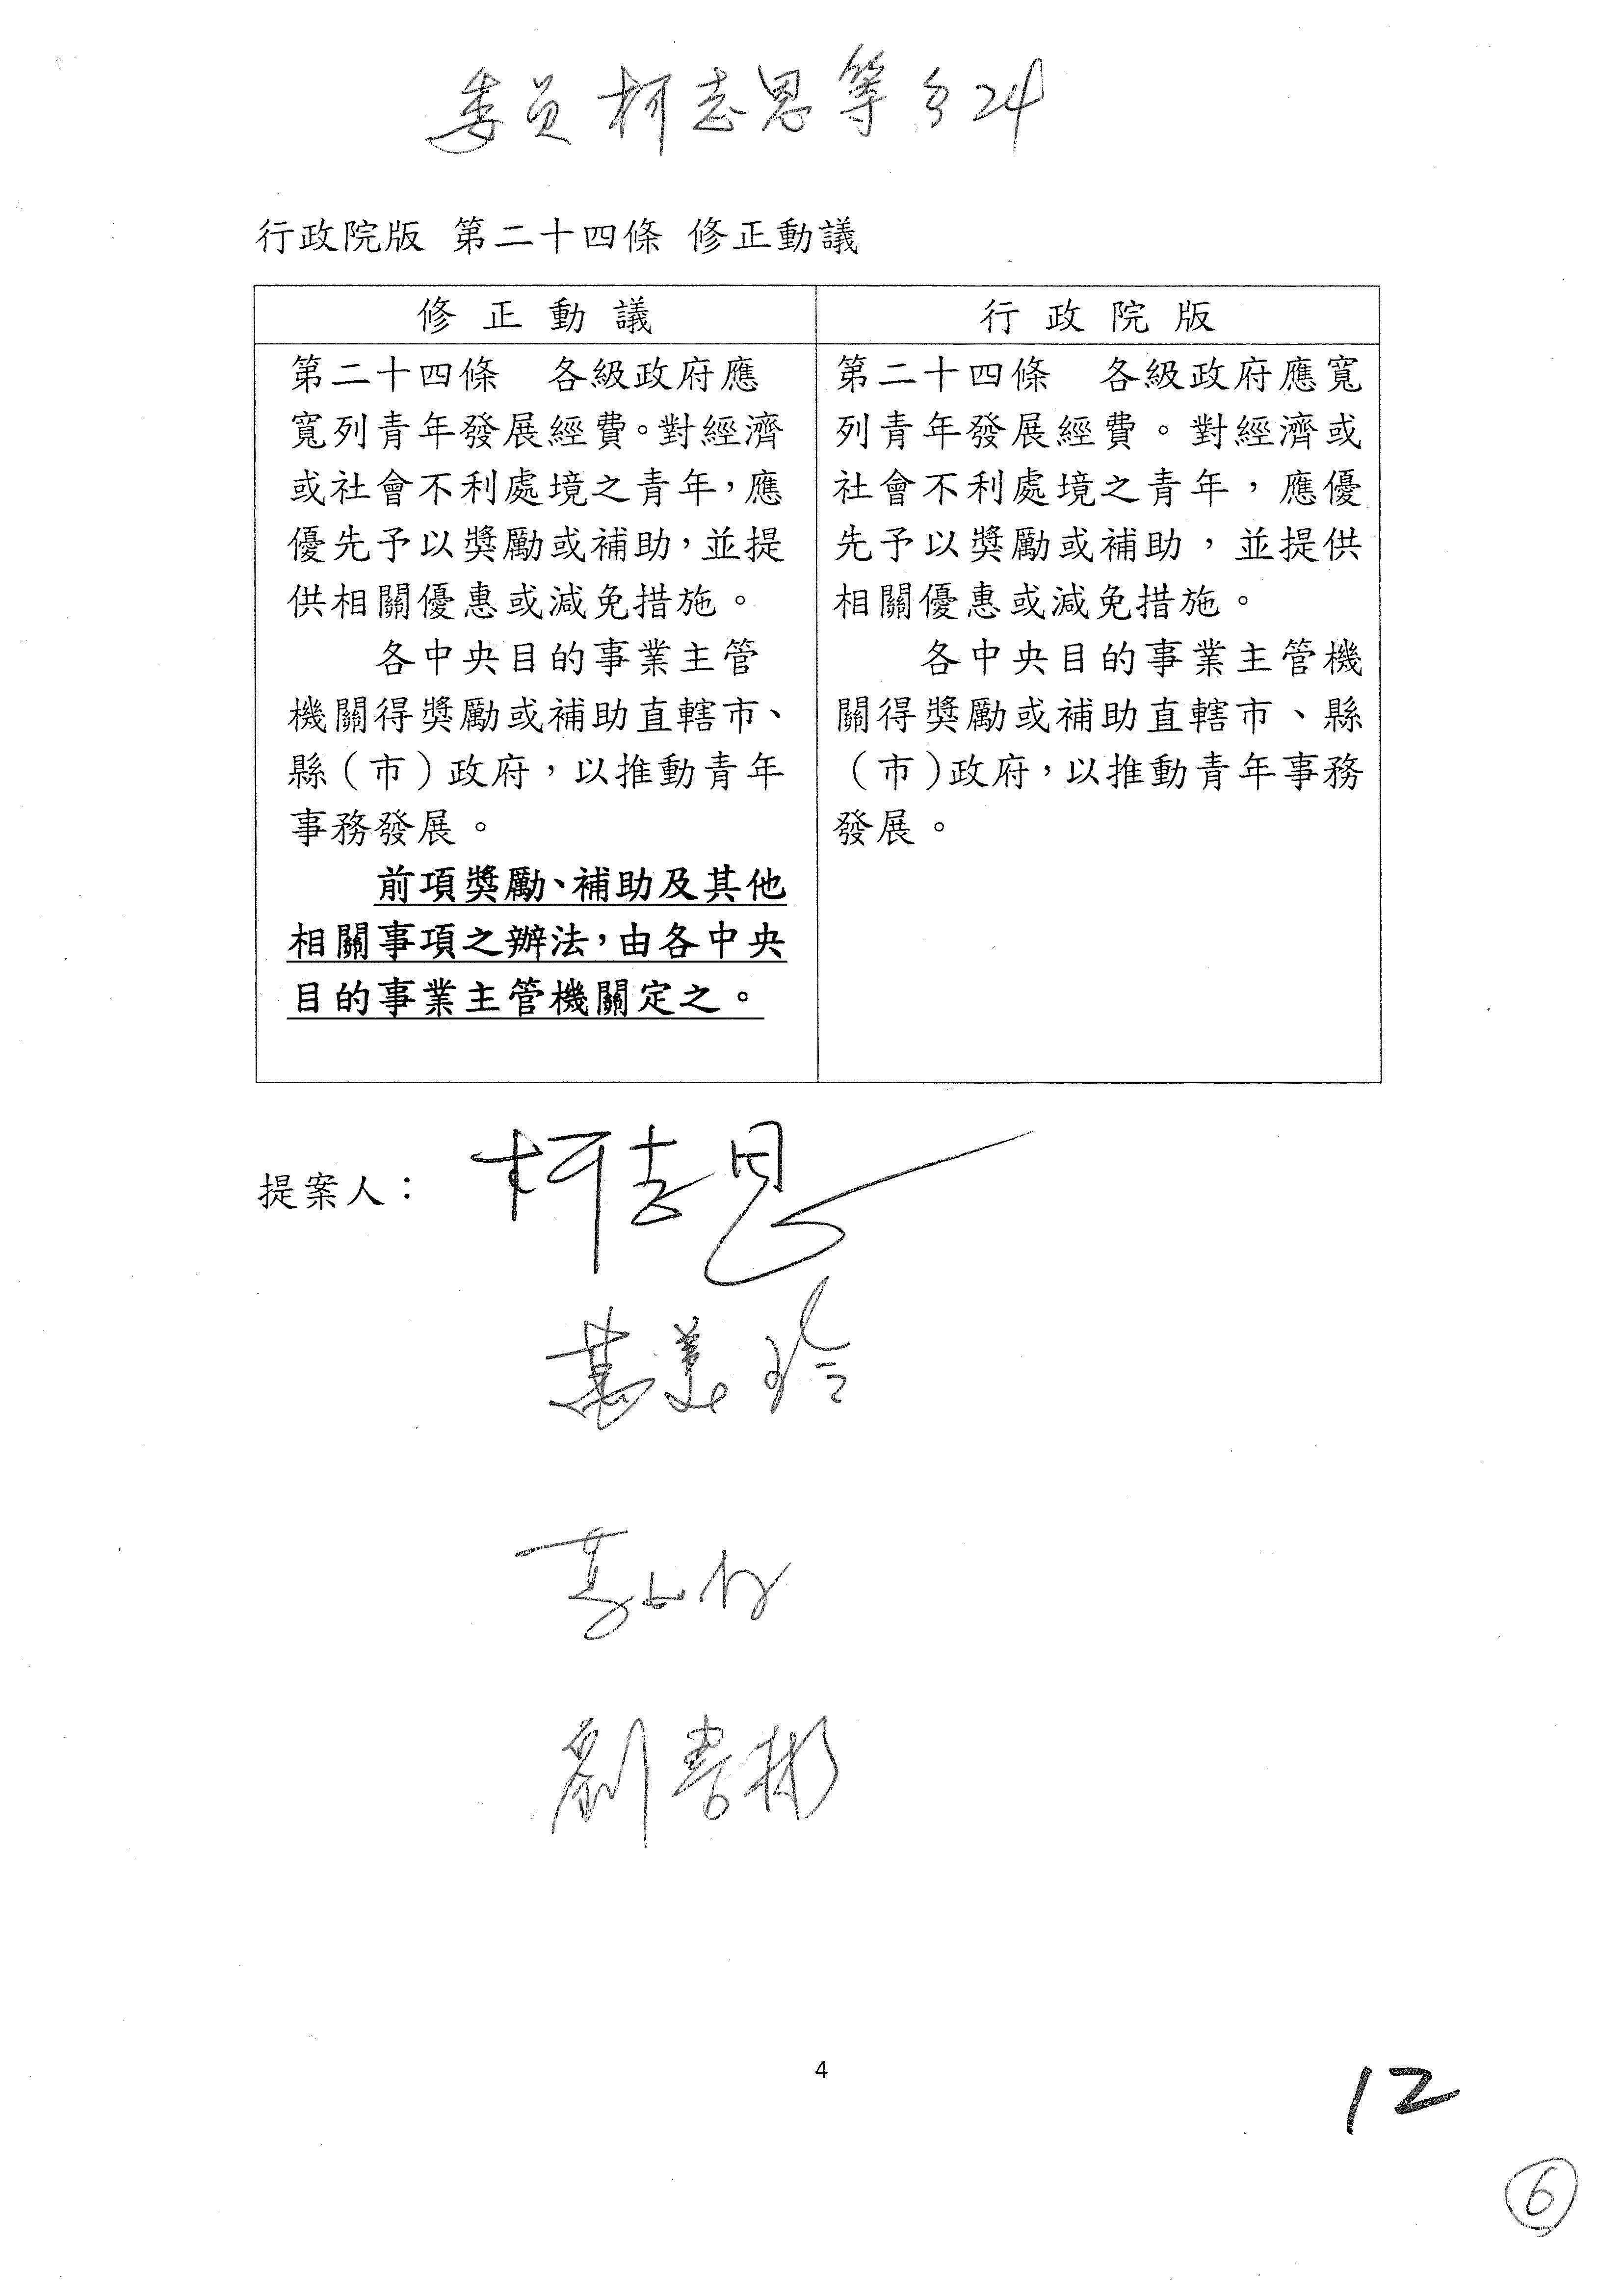 委員柯志恩等 §24
行政院版 第二十四條 修正動議
修正動議
第二十四條 各級政府應
寬列青年發展經費。對經濟
或社會不利處境之青年，應
優先予以獎勵或補助，並提
供相關優惠或減免措施。
各中央目的事業主管
機關得獎勵或補助直轄市、
縣（市）政府，以推動青年
事務發展。
前項獎勵、補助及其他
相關事項之辦法，由各中央
目的事業主管機關定之。
行政院版
第二十四條 各級政府應寬
列青年發展經費。對經濟或
社會不利處境之青年，應優
先予以獎勵或補助，並提供
相關優惠或減免措施。
各中央目的事業主管機
關得獎勵或補助直轄市、縣
（市）政府，以推動青年事務
發展。
提案人：
柯志恩
萬美玲
劉書彬
4
12
6